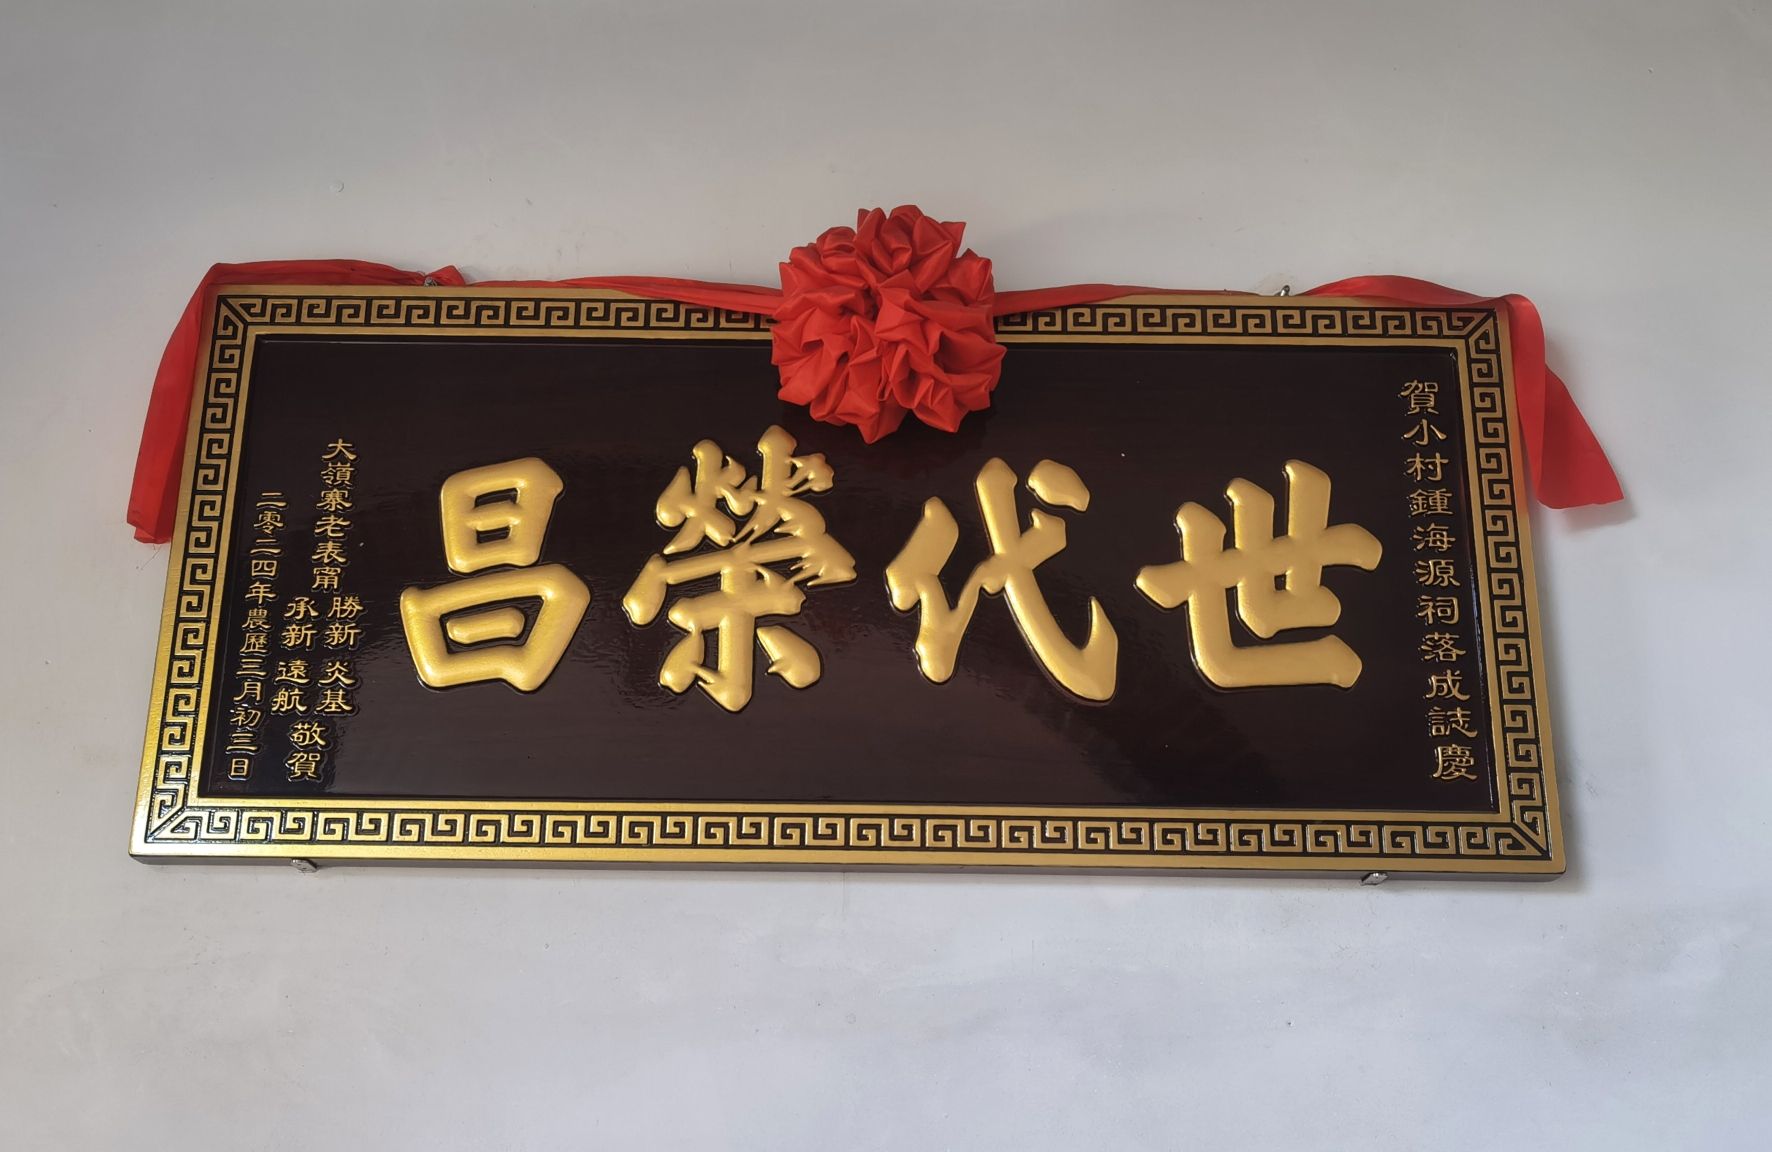 賀小村鍾海源祠落成誌慶
世代榮昌
大嶺寨老表甯
勝新 炎基
承新 遠航
敬賀
二零二四年農歷三月初三日